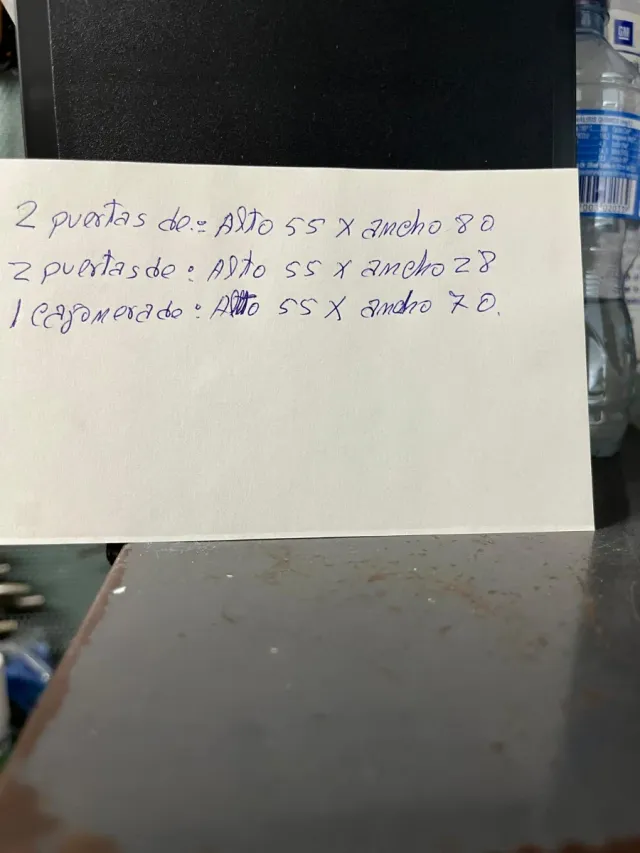 2 puertas de:= Alto 55 x ancho 80
2 puertas de: Alto 55 x ancho 28
1 cajonerade: Alto 55 x ancho 70.
GM